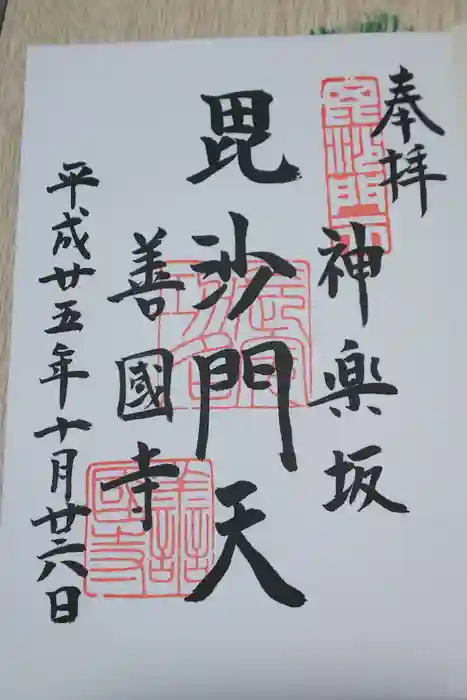 奉拝
神楽坂
毘沙門天
善國寺
平成廿五年十月廿六日